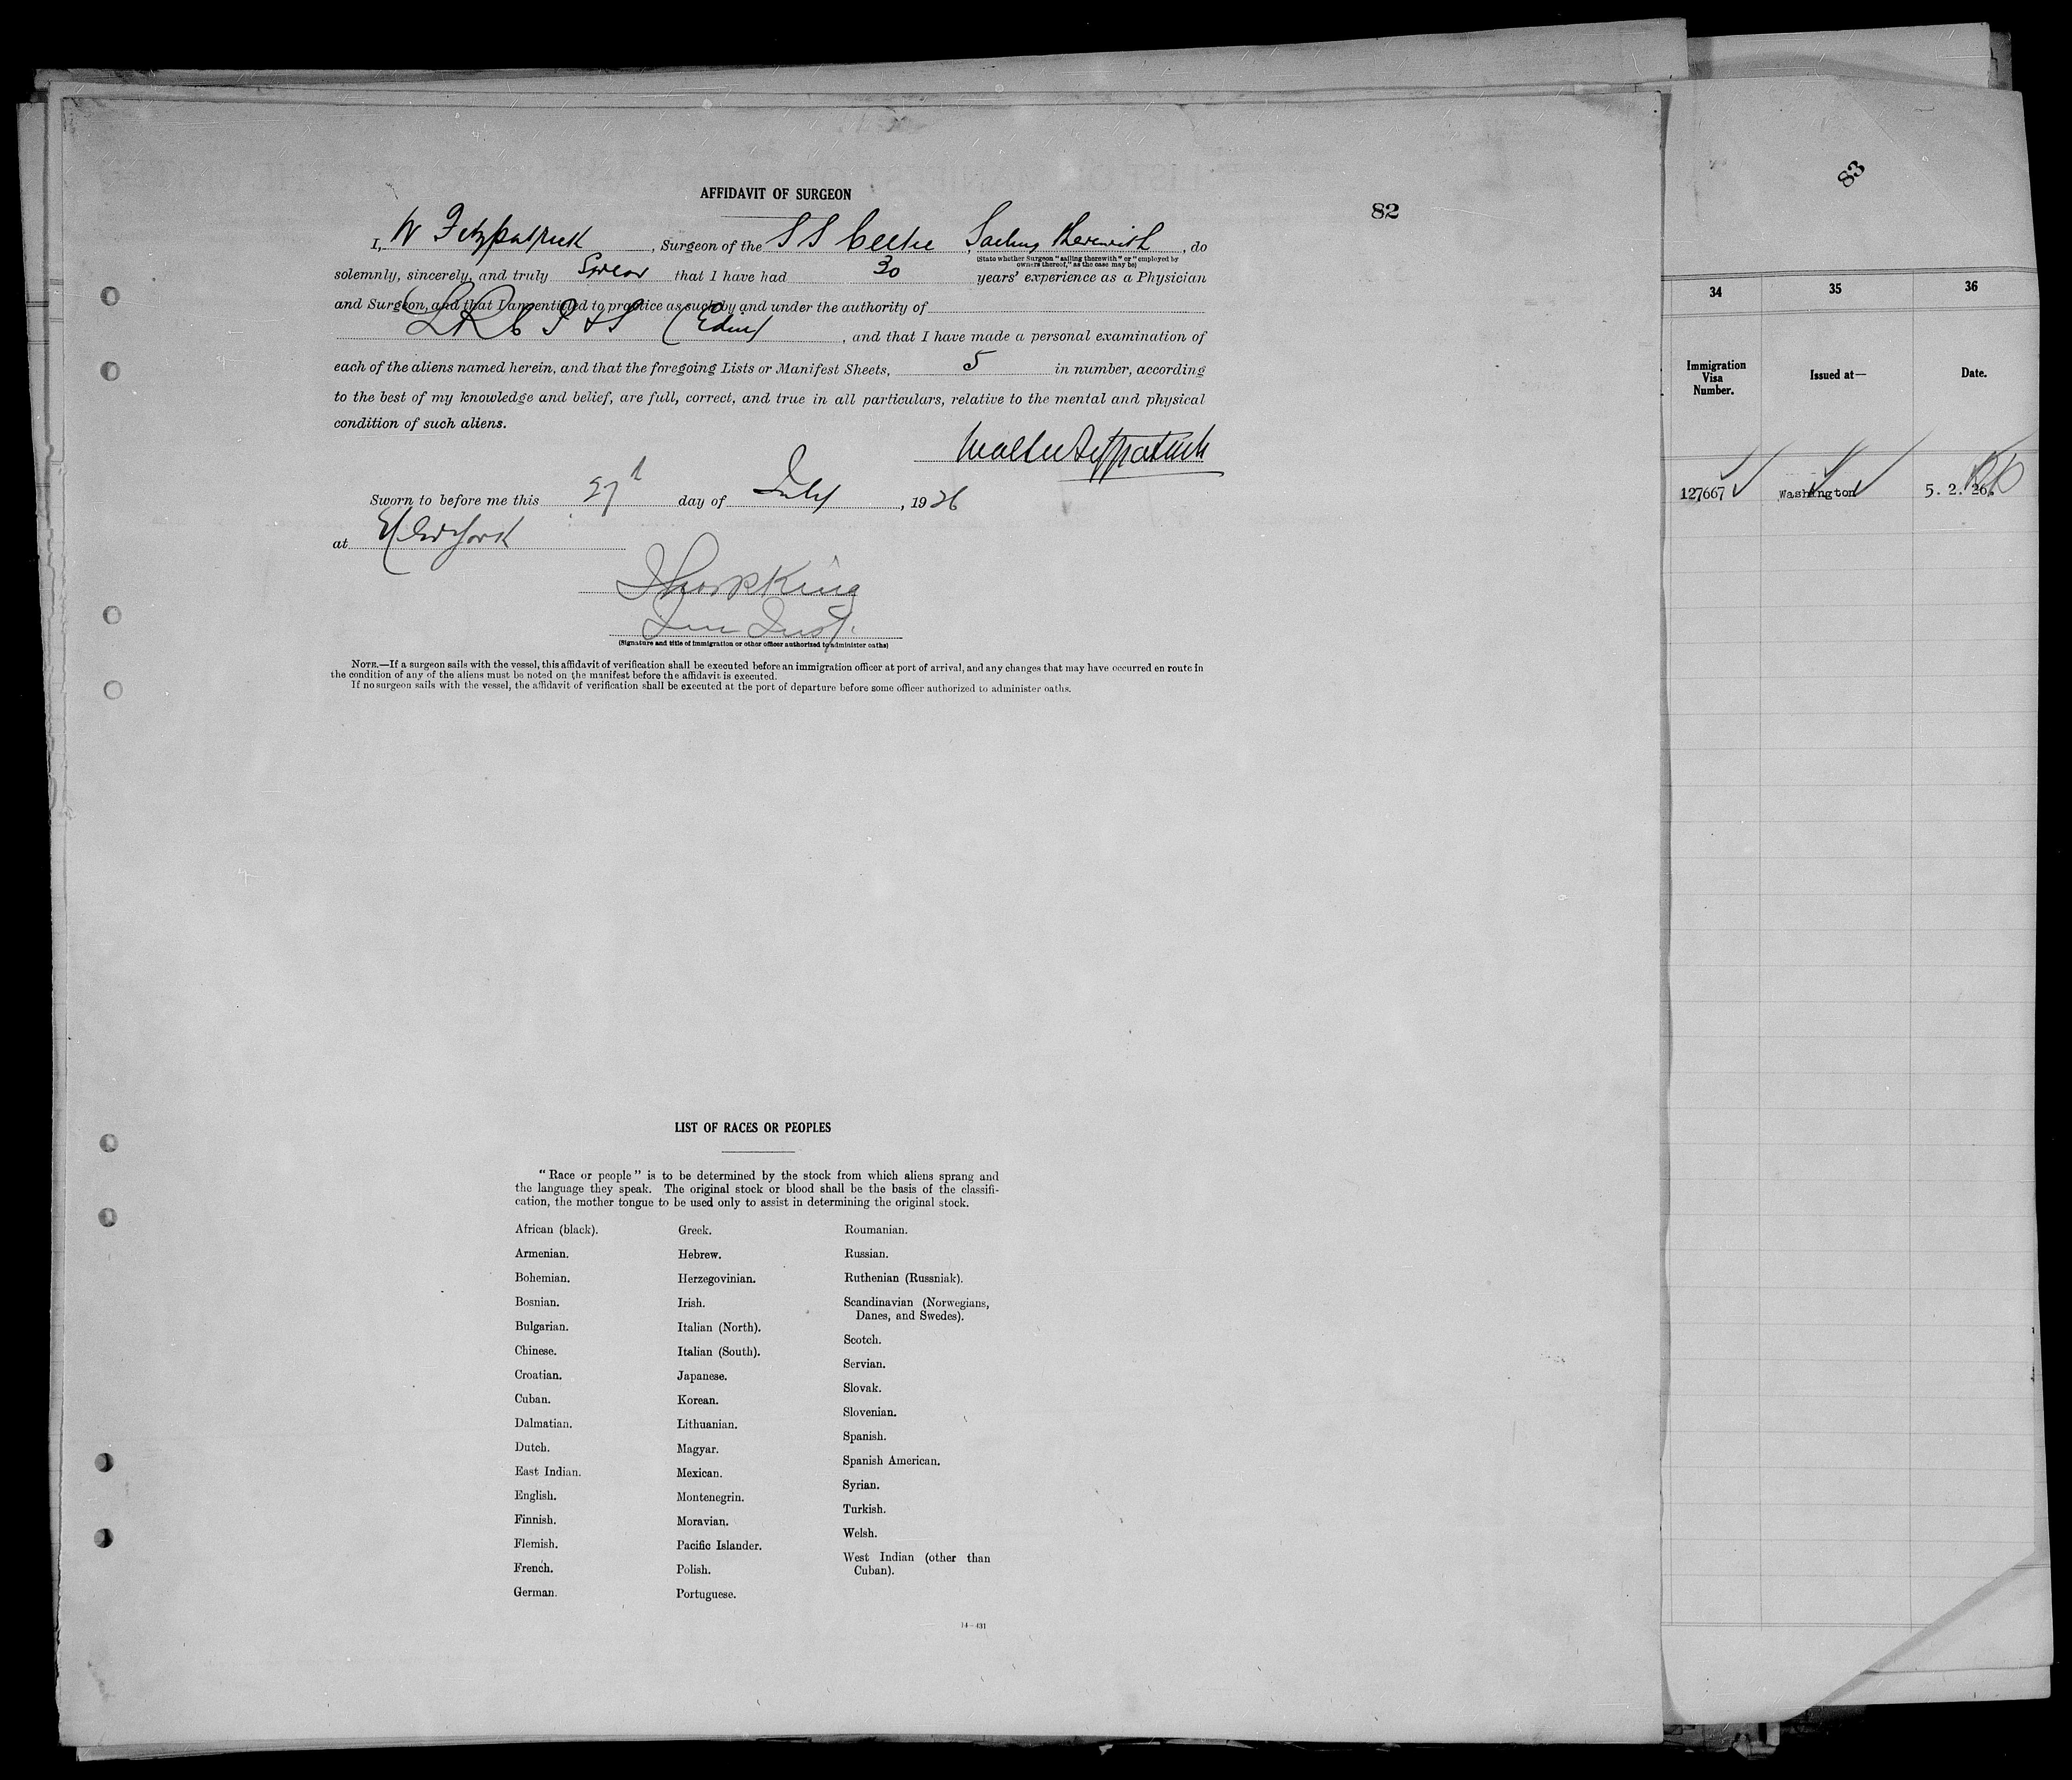 AFFIDAVIT OF SURGEON
82
I, W Fitzpatrick, Surgeon of the S S Celtic, Sailing therewith, do
(State whether Surgeon "sailing therewith" or "employed by
owners thereof," as the case may be)
solemnly, sincerely, and truly Swear that I have had 30 years' experience as a Physician
and Surgeon, and that I am entitled to practice as such by and under the authority of
LRC P & S (Edin), and that I have made a personal examination of
each of the aliens named herein, and that the foregoing Lists or Manifest Sheets, 5 in number, according
to the best of my knowledge and belief, are full, correct, and true in all particulars, relative to the mental and physical
condition of such aliens.
Walter Fitzpatrick
Sworn to before me this 27th day of July, 1926
at New York
Imm Insp.
(Signature and title of immigration or other officer authorized to administer oaths)
NOTE.—If a surgeon sails with the vessel, this affidavit of verification shall be executed before an immigration officer at port of arrival, and any changes that may have occurred en route in
the condition of any of the aliens must be noted on the manifest before the affidavit is executed.
If no surgeon sails with the vessel, the affidavit of verification shall be executed at the port of departure before some officer authorized to administer oaths.
LIST OF RACES OR PEOPLES
"Race or people" is to be determined by the stock from which aliens sprang and
the language they speak. The original stock or blood shall be the basis of the classifi-
cation, the mother tongue to be used only to assist in determining the original stock.
African (black).
Armenian.
Bohemian.
Bosnian.
Bulgarian.
Chinese.
Croatian.
Cuban.
Dalmatian.
Dutch.
East Indian.
English.
Finnish.
Flemish.
French.
German.
Greek.
Hebrew.
Herzegovinian.
Irish.
Italian (North).
Italian (South).
Japanese.
Korean.
Lithuanian.
Magyar.
Mexican.
Montenegrin.
Moravian.
Pacific Islander.
Polish.
Portuguese.
Roumanian.
Russian.
Ruthenian (Russniak).
Scandinavian (Norwegians,
Danes, and Swedes).
Scotch.
Servian.
Slovak.
Slovenian.
Spanish.
Spanish American.
Syrian.
Turkish.
Welsh.
West Indian (other than
Cuban).
14—431
83
34 35 36
Immigration
Visa
Number.
Issued at—
Date.
127667 Washington 5. 2. 26.